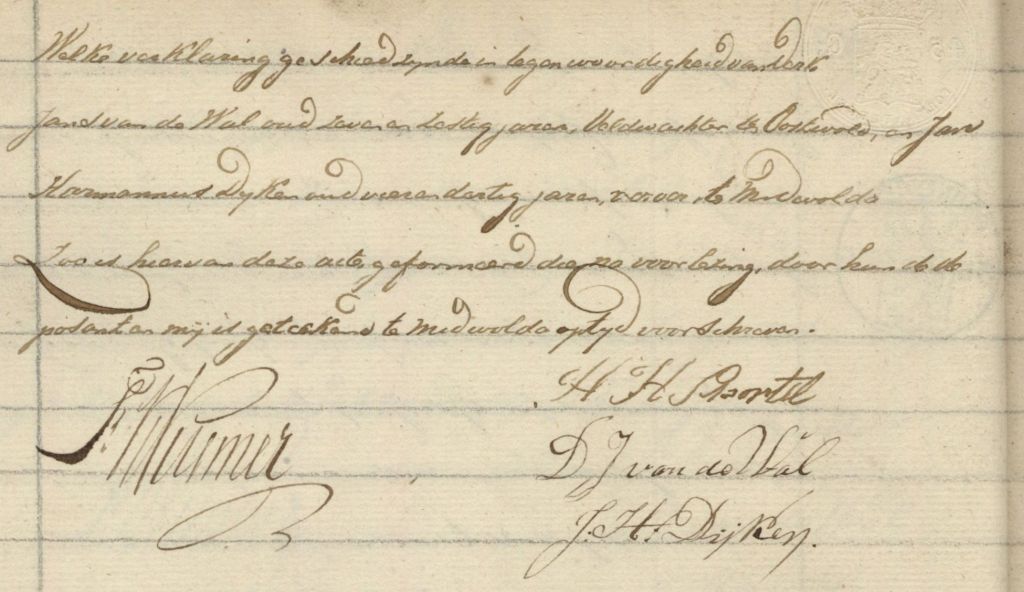 Welke verklaring geschied zynde in tegenwoordigheid van Derk
Jans van de Wal oud zeven en zestig jaren, Veldwachter te Oostwold, en Jan
Harmannus Dyken oud vier en dertig jaren, te Midwolda
Zoo is hiervan deze acte geformeerd die na voorlezing, door hun de de
posant en mij is getekend te Midwolda op tyd voorschreven.
H H
D J van de Wal
J: H: Dijken.